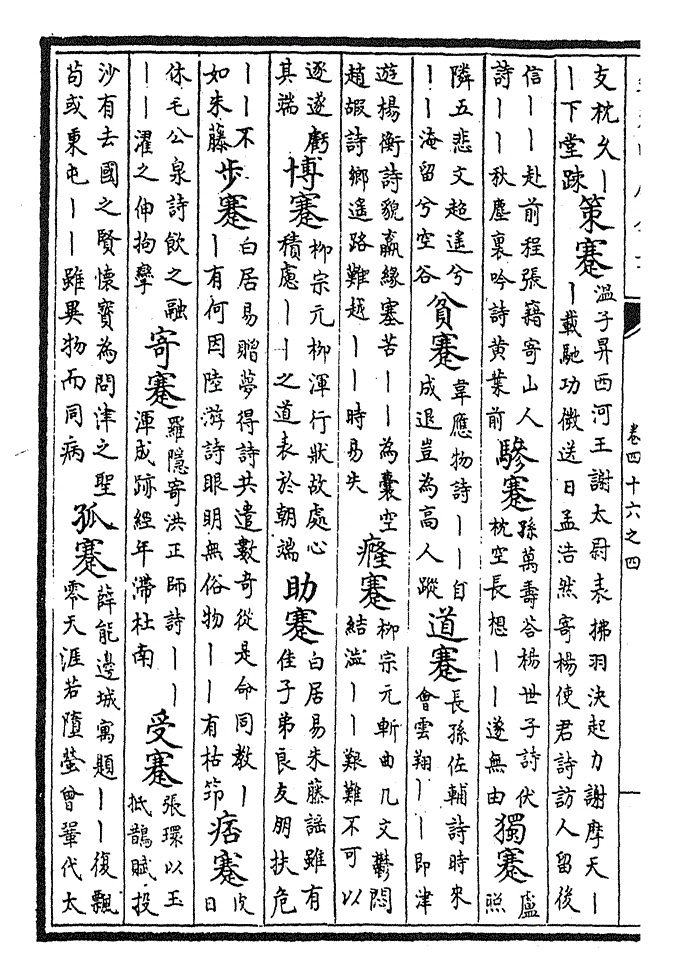 卷四十六之四
支枕久｜
｜下堂踈
策蹇
温子昇西河王謝太尉表拂羽決起力謝摩天｜
｜載馳功微送日孟浩然寄楊使君詩訪人留後
信｜｜赴前程張籍寄山人
詩｜｜秋塵裏吟詩黄葉前
驂蹇
孫萬壽答楊世子詩伏
枕空長想｜｜遂無由
獨蹇
盧
照
隣五悲文超遥兮
｜｜海留兮空谷
貧蹇
韋應物詩｜｜自
成退豈為高人蹤
道蹇
長孫佐輔詩時來
會雲翔｜｜即津
遊楊衡詩貌羸緣塞苦｜｜為囊空
趙嘏詩鄉遥路難越｜｜時易失
癃蹇
柳宗元斬曲几文鬱悶
結澁｜｜艱難不可以
逐遂虧
其端
博蹇
柳宗元柳渾行狀故處心
積慮｜｜之道表於朝端
助蹇
白居易朱藤謡雖有
佳子弟良友朋扶危
｜｜不
如朱藤
步蹇
白居易贈夢得詩共遣數奇從是命同教｜
｜有何因陸游詩眼明無俗物｜｜有枯笻
痞蹇
皮
日
休毛公泉詩飲之融
｜｜濯之伸拘攣
寄蹇
羅隱寄洪正師詩｜｜
渾成跡經年滯杜南
受蹇
張環以玉
抵鵲賦投
沙有去國之賢懷寶為問津之聖
苟或東屯｜｜雖異物而同病
孤蹇
薛能邊城寓題｜｜復飄
零天涯若墮螢曾鞏代太